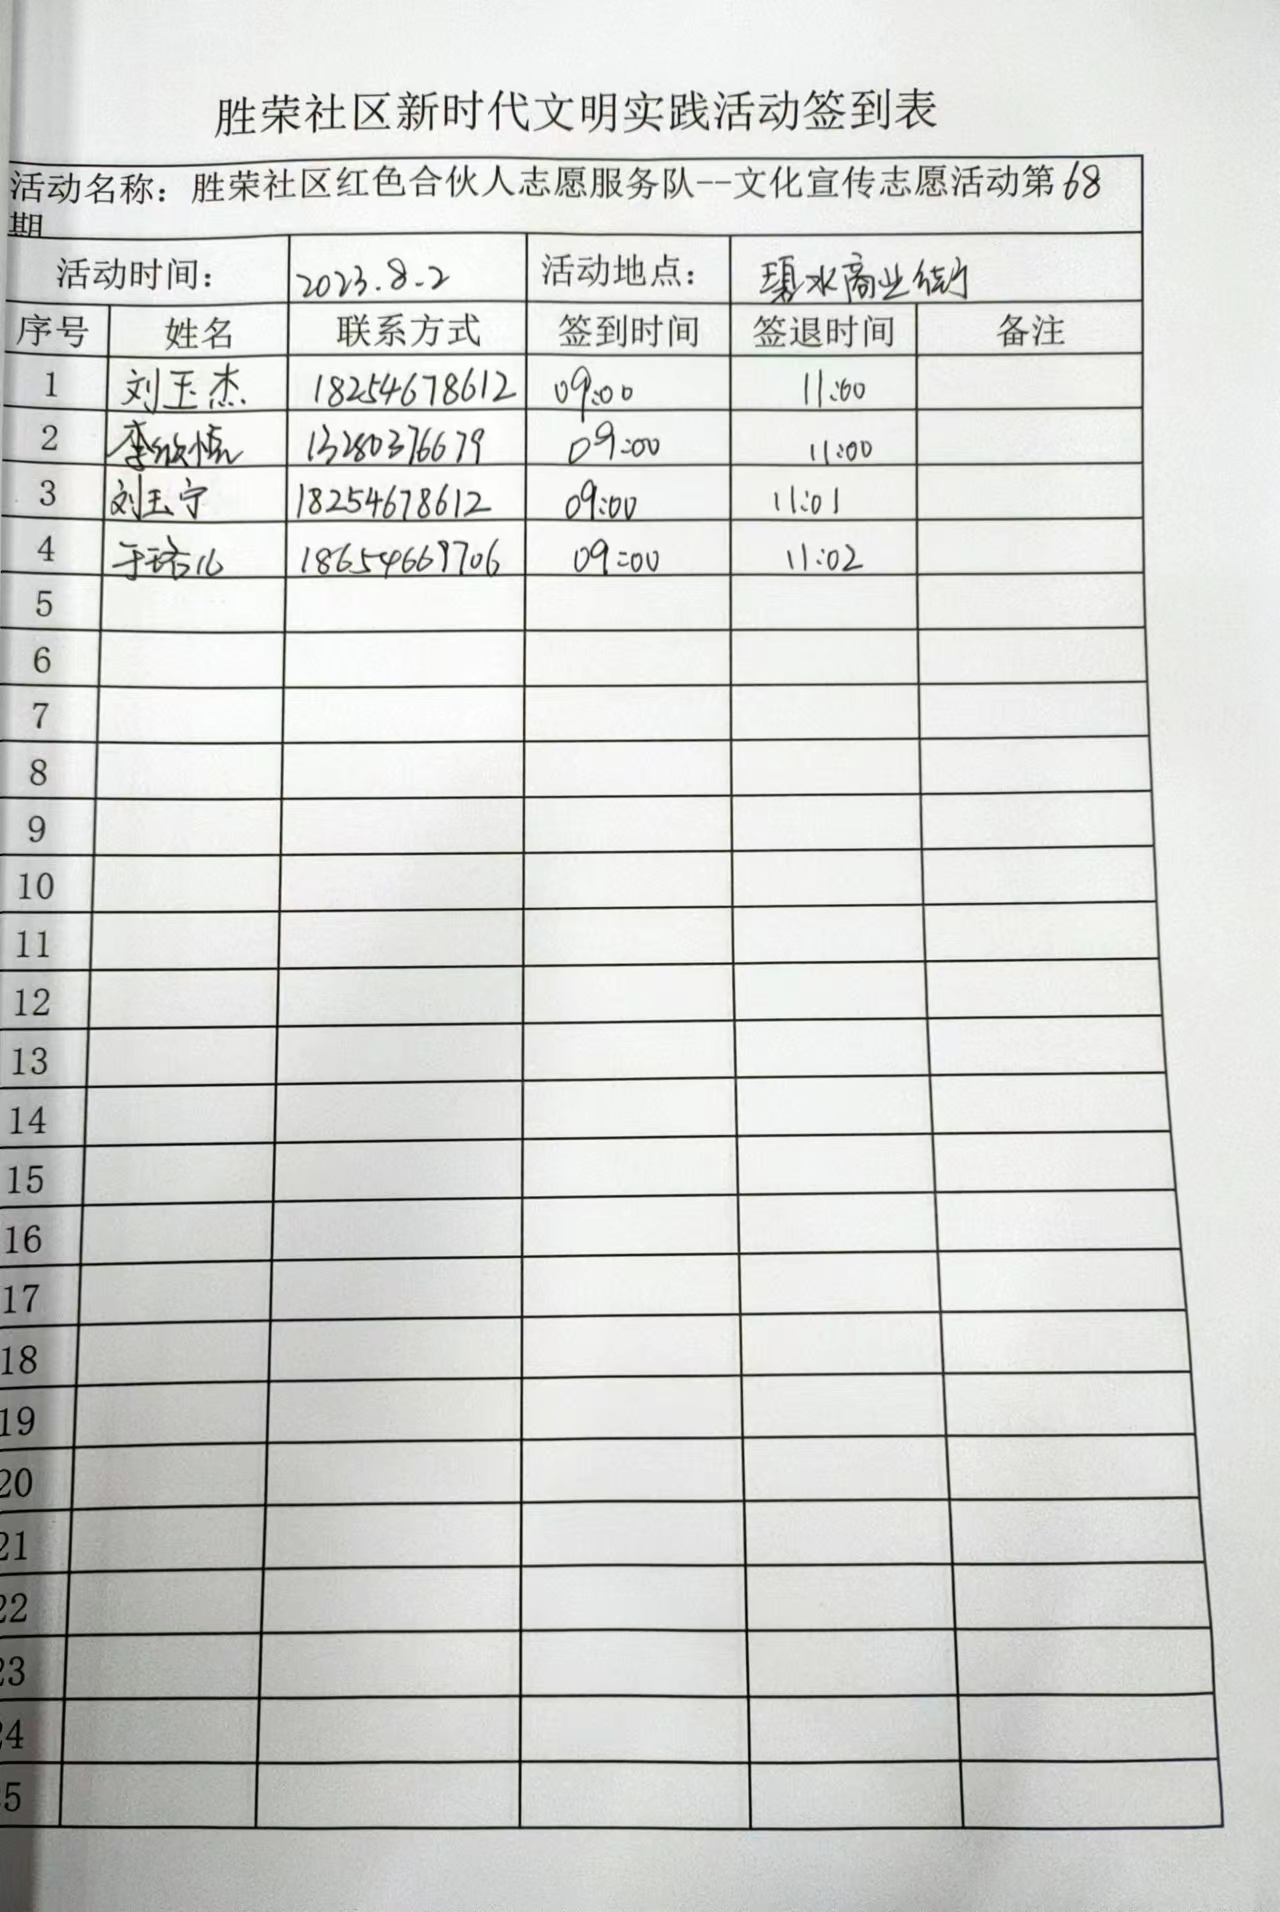 胜荣社区新时代文明实践活动签到表
活动名称：胜荣社区红色合伙人志愿服务队--文化宣传志愿活动第68
期
活动时间： 2023.8.2 活动地点： 碧水商业街
序号 姓名 联系方式 签到时间 签退时间 备注
1 刘玉杰 18254678612 09:00 11:00
2 李 13280376679 09:00 11:00
3 刘玉宁 18254678612 09:00 11:01
4 于 18654669706 09:00 11:02
5
6
7
8
9
10
11
12
13
14
15
16
17
18
19
20
21
22
23
24
5